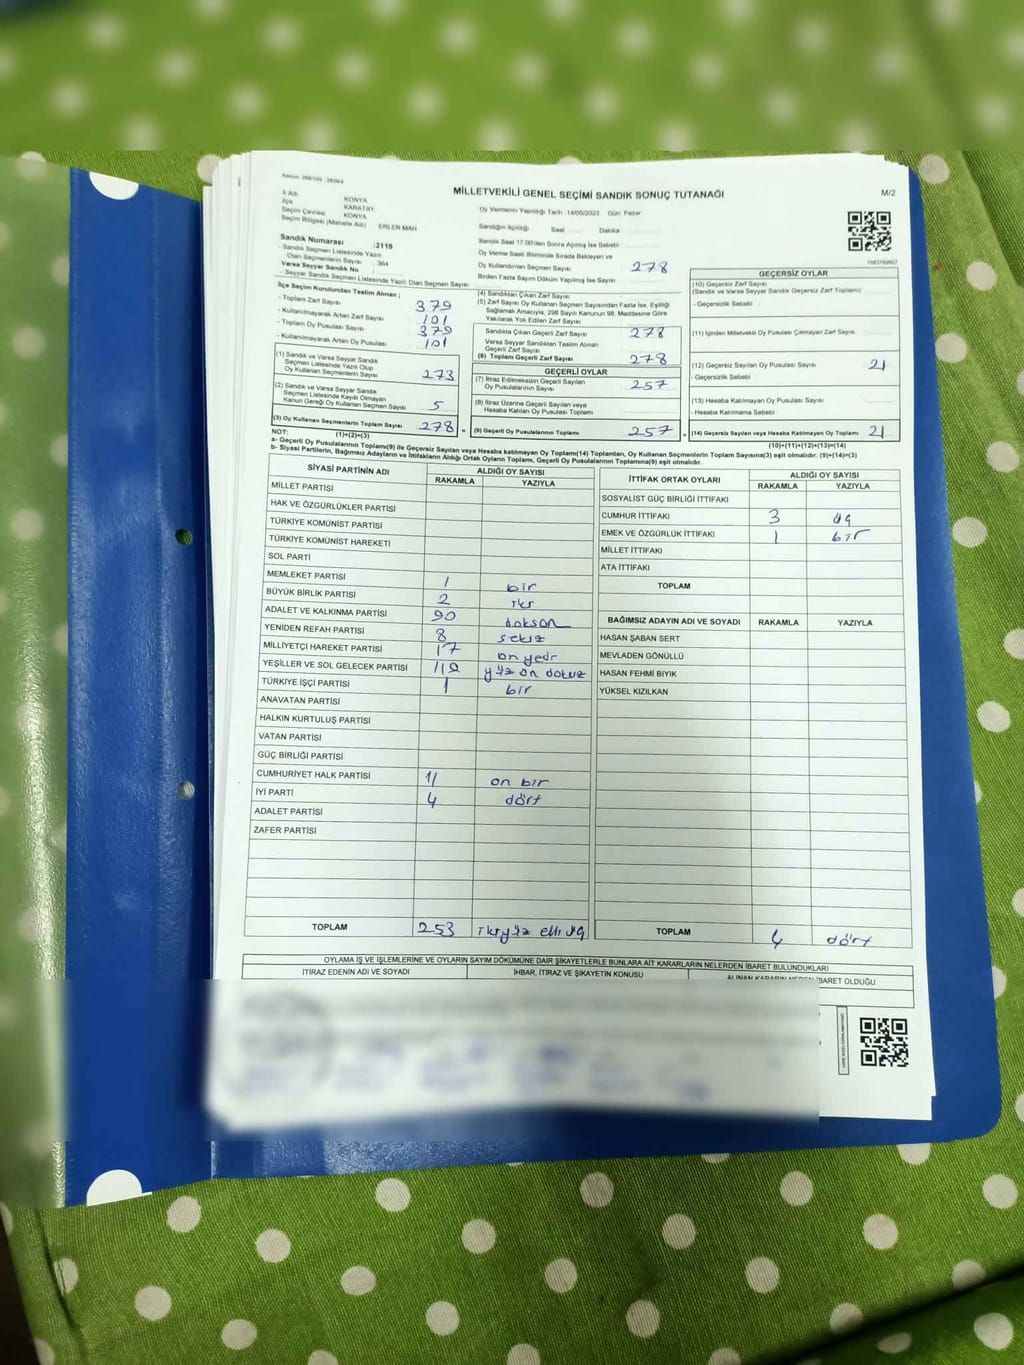 MİLLETVEKİLİ GENEL SEÇİMİ SANDIK SONUÇ TUTANAĞI
M/2
İl Adı KONYA
İlçe KARATAY
Seçim Çevresi KONYA
Seçim Bölgesi (Mahalle Adı) ERLER MAH
Oy Vermenin Yapıldığı Tarih : 14/05/2023 Gün Pazar
Sandığın Açıldığı Saat Dakika
Sandık Saat 17.00'den Sonra Açılmış İse Sebebi
Oy Verme Saati Bitiminde Sırada Bekleyen ve
Oy Kullandırılan Seçmen Sayısı 278
Birden Fazla Sayım Döküm Yapılmış İse Sayısı
Sandık Numarası : 2119
- Sandık Seçmen Listesinde Yazılı
Olan Seçmenlerin Sayısı : 364
Varsa Seyyar Sandık No :
- Seyyar Sandık Seçmen Listesinde Yazılı Olan Seçmen Sayısı
İlçe Seçim Kurulundan Teslim Alınan ;
- Toplam Zarf Sayısı 379
- Kullanılmayarak Artan Zarf Sayısı 101
- Toplam Oy Pusulası Sayısı 379
- Kullanılmayarak Artan Oy Pusulası 101
(1) Sandık ve Varsa Seyyar Sandık
Seçmen Listesinde Yazılı Olup
Oy Kullanan Seçmenlerin Sayısı 273
(2) Sandık ve Varsa Seyyar Sandık
Seçmen Listesinde Kayıtlı Olmayan
Kanun Gereği Oy Kullanan Seçmen Sayısı 5
(3) Oy Kullanan Seçmenlerin Toplam Sayısı 278
(1)+(2)=(3)
(4) Sandıktan Çıkan Zarf Sayısı
(5) Zarf Sayısı Oy Kullanan Seçmen Sayısından Fazla İse, Eşitliği
Sağlamak Amacıyla, 298 Sayılı Kanunun 98. Maddesine Göre
Yakılarak Yok Edilen Zarf Sayısı
Sandıkta Çıkan Geçerli Zarf Sayısı 278
Varsa Seyyar Sandıktan Teslim Alınan
Geçerli Zarf Sayısı
(6) Toplam Geçerli Zarf Sayısı 278
GEÇERLİ OYLAR
(7) İtiraz Edilmeksizin Geçerli Sayılan
Oy Pusulalarının Sayısı 257
(8) İtiraz Üzerine Geçerli Sayılan veya
Hesaba Katılan Oy Pusulası Toplamı
(9) Geçerli Oy Pusulalarının Toplamı 257
GEÇERSİZ OYLAR
(10) Geçersiz Zarf Sayısı
(Sandık ve Varsa Seyyar Sandık Geçersiz Zarf Toplamı)
- Geçersizlik Sebebi :
(11) İçinden Milletvekili Oy Pusulası Çıkmayan Zarf Sayısı
(12) Geçersiz Sayılan Oy Pusulası Sayısı 21
- Geçersizlik Sebebi :
(13) Hesaba Katılmayan Oy Pusulası Sayısı
- Hesaba Katılmama Sebebi :
(14) Geçersiz Sayılan veya Hesaba Katılmayan Oy Toplamı 21
(10)+(11)+(12)+(13)=(14)
NOT:
a- Geçerli Oy Pusulalarının Toplamı(9) ile Geçersiz Sayılan veya Hesaba katılmayan Oy Toplamı(14) Toplamları, Oy Kullanan Seçmenlerin Toplam Sayısına(3) eşit olmalıdır. (9)+(14)=(3)
b- Siyasi Partilerin, Bağımsız Adayların ve İttifakların Aldığı Ortak Oyların Toplamı, Geçerli Oy Pusulalarının Toplamına(9) eşit olmalıdır.
SİYASİ PARTİNİN ADI ALDIĞI OY SAYISI
RAKAMLA YAZIYLA
MİLLET PARTİSİ
HAK VE ÖZGÜRLÜKLER PARTİSİ
TÜRKİYE KOMÜNİST PARTİSİ
TÜRKİYE KOMÜNİST HAREKETİ
SOL PARTİ
MEMLEKET PARTİSİ 1 bir
BÜYÜK BİRLİK PARTİSİ 2 iki
ADALET VE KALKINMA PARTİSİ 90 doksan
YENİDEN REFAH PARTİSİ 8 sekiz
MİLLİYETÇİ HAREKET PARTİSİ 17 on yedi
YEŞİLLER VE SOL GELECEK PARTİSİ 119 yüz on dokuz
TÜRKİYE İŞÇİ PARTİSİ 1 bir
ANAVATAN PARTİSİ
HALKIN KURTULUŞ PARTİSİ
VATAN PARTİSİ
GÜÇ BİRLİĞİ PARTİSİ
CUMHURİYET HALK PARTİSİ 11 on bir
İYİ PARTİ 4 dört
ADALET PARTİSİ
ZAFER PARTİSİ
TOPLAM 253 ikiyüz elli üç
İTTİFAK ORTAK OYLARI ALDIĞI OY SAYISI
RAKAMLA YAZIYLA
SOSYALİST GÜÇ BİRLİĞİ İTTİFAKI
CUMHUR İTTİFAKI 3 üç
EMEK VE ÖZGÜRLÜK İTTİFAKI 1 bir
MİLLET İTTİFAKI
ATA İTTİFAKI
TOPLAM
BAĞIMSIZ ADAYIN ADI VE SOYADI RAKAMLA YAZIYLA
HASAN ŞABAN SERT
MEVLADEN GÖNÜLLÜ
HASAN FEHMİ BIYIK
YÜKSEL KIZILKAN
TOPLAM 4 dört
OYLAMA İŞ VE İŞLEMLERİNE VE OYLARIN SAYIM DÖKÜMÜNE DAİR ŞİKAYETLERLE BUNLARA AİT KARARLARIN NELERDEN İBARET BULUNDUKLARI
İTİRAZ EDENİN ADI VE SOYADI İHBAR, İTİRAZ VE ŞİKAYETİN KONUSU ALINAN KARARIN NEDEN İBARET OLDUĞU